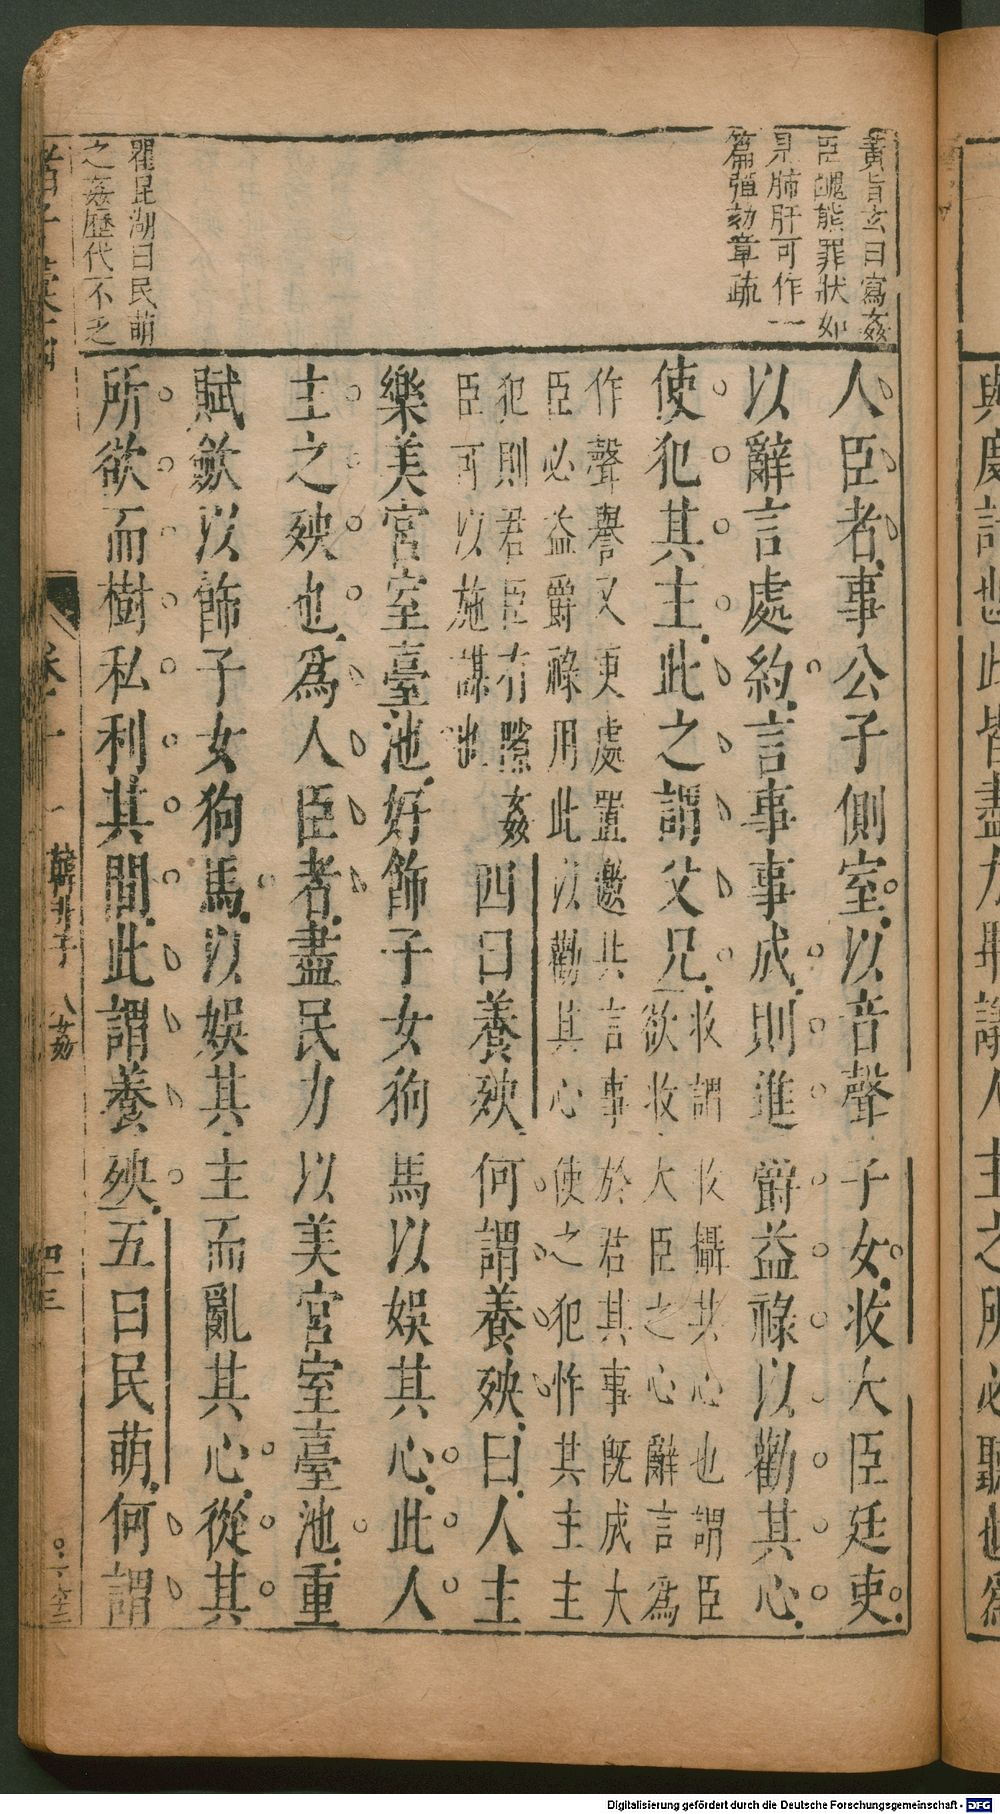 黃旨玄曰寫姦
臣醜態罪狀如
見肺肝可作一
篇彈劾章疏
瞿昆湖曰民萌
之姦歷代不乏
人臣者事公子側室以音聲子女收大臣廷吏
以辭言處約言事事成則進爵益祿以勸其心
使犯其主此之謂父兄
收謂收攝其心也謂臣
欲收大臣之心辭言爲
作聲譽又更處置邀共言事於君其事既成大
臣必益爵祿用此以勸其心使之犯忤其主主
犯則君臣有隙姦
臣可以施謀也
四曰養殃何謂養殃曰人主
樂美宮室臺池好飾子女狗馬以娛其心此人
主之殃也爲人臣者盡民力以美宮室臺池重
賦斂以飾子女狗馬以娛其主而亂其心從其
所欲而樹私利其間此謂養殃五曰民萌何謂
韓非子 八姦
四十三
Digitalisierung gefördert durch die Deutsche Forschungsgemeinschaft - DFG